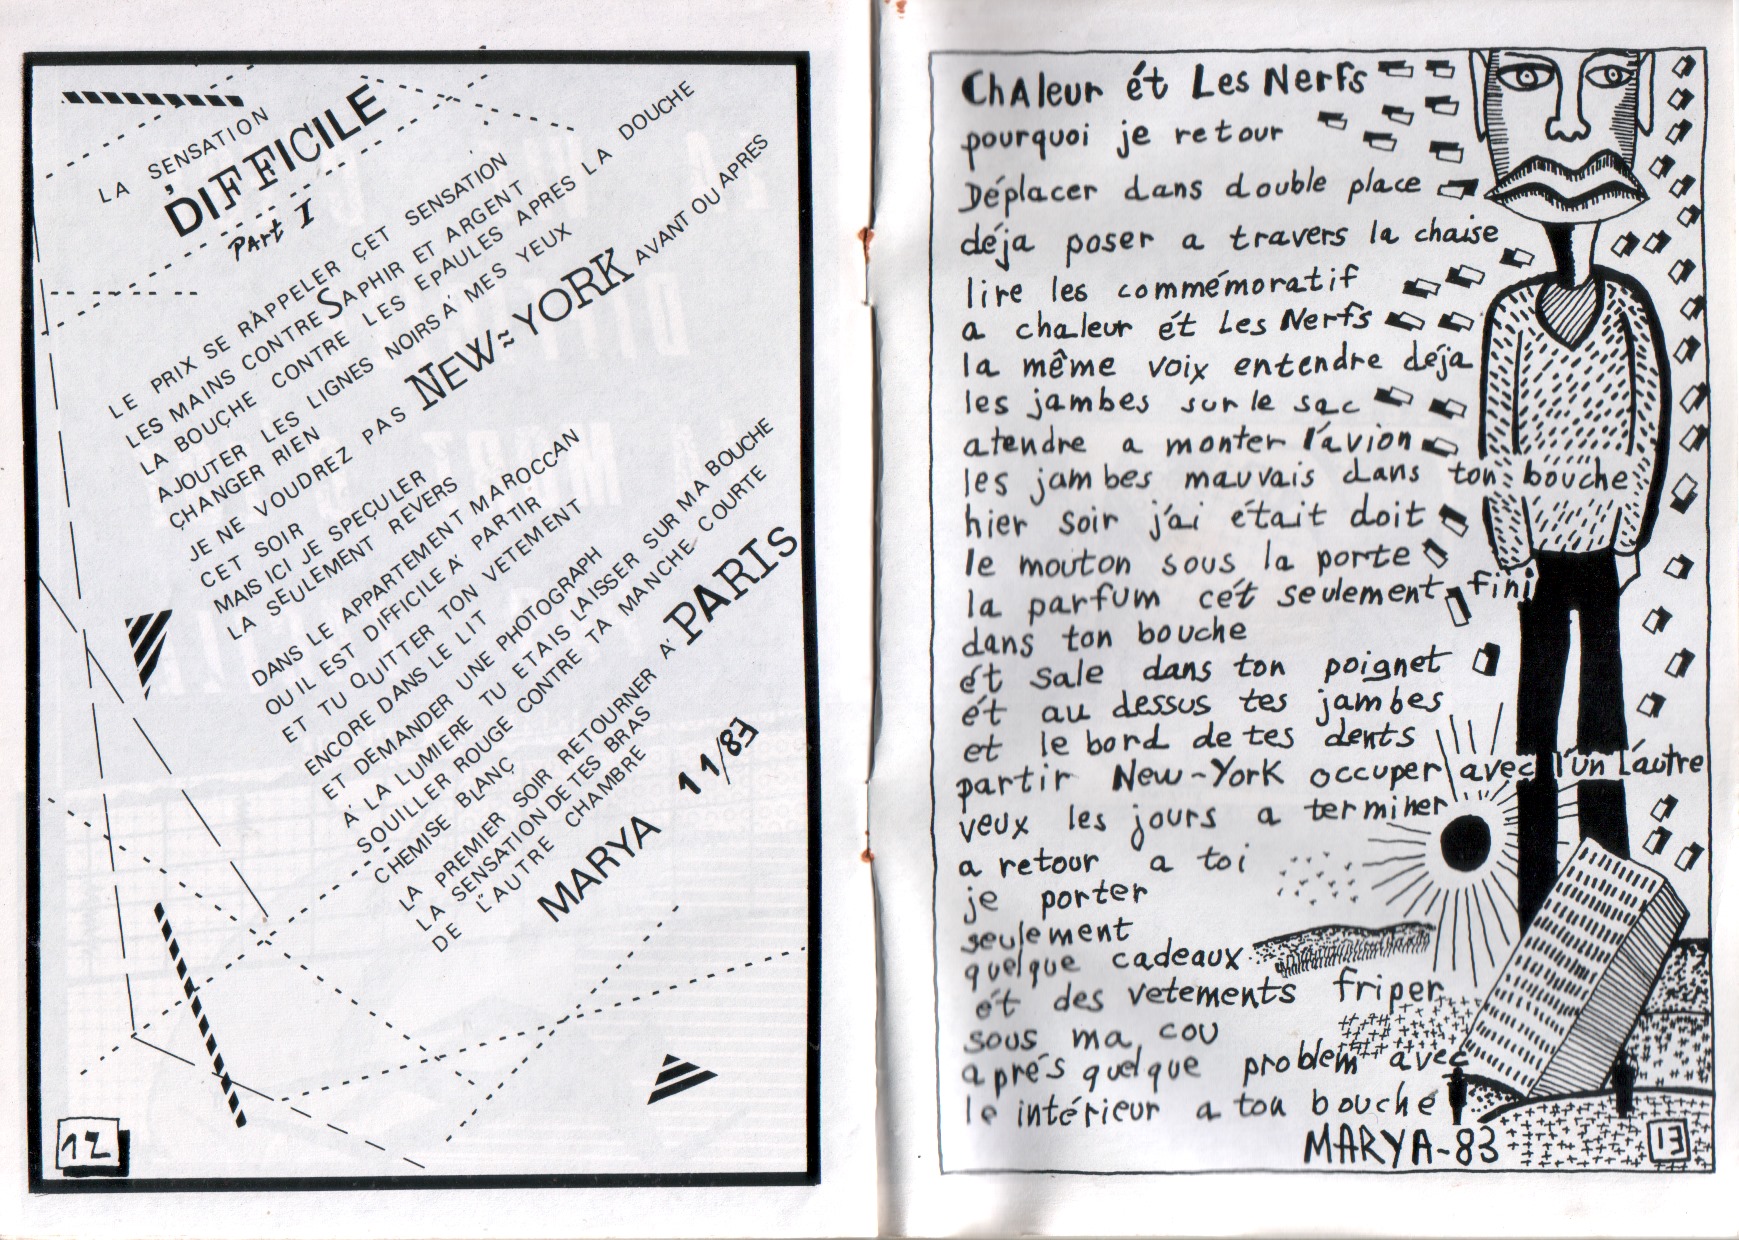 LA SENSATION
DIFFICILE
Part I
LE PRIX SE RAPPELER ÇET SENSATION
LES MAINS CONTRE SAPHIR ET ARGENT
LA BOUÇHE CONTRE LES EPAULES APRES LA DOUCHE
AJOUTER LES LIGNES NOIRS A' MES YEUX
ÇHANGER RIEN
JE NE VOUDREZ PAS NEW≈YORK AVANT OU APRES
CET SOIR
MAIS ICI JE SPEÇULER
LA SEULEMENT REVERS
DANS LE APPARTEMENT MAROCCAN
OU IL EST DIFFICILE A' PARTIR
ET TU QUITTER TON VETEMENT
ENCORE DANS LE LIT
ET DEMANDER UNE PHOTOGRAPH
A' LA LUMIERE TU ETAIS LAISSER SUR MA BOUCHE
SOUILLER ROUGE CONTRE TA MANCHE COURTE
CHEMISE BLANÇ
LA PREMIER SOIR RETOURNER A' PARIS
LA SENSATION DE TES BRAS
DE L'AUTRE CHAMBRE
MARYA 11/83
12
ChAleur ét Les Nerfs
pourquoi je retour
Déplacer dans double place
déja poser a travers la chaise
lire les commémoratif
a chaleur ét Les Nerfs
la même voix entendre déja
les jambes sur le sac
atendre a monter l'avion
les jambes mauvais dans ton bouche
hier soir j'ai était doit
le mouton sous la porte
la parfum cét seulement fini
dans ton bouche
ét sale dans ton poignet
ét au dessus tes jambes
et le bord de tes dents
partir New-York occuper avec l'un l'autre
veux les jours a terminer
a retour a toi
je porter
seulement
quelque cadeaux
ét des vetements friper
sous ma cou
aprés quelque problem avec
le intérieur a ton bouche
MARYA-83
13